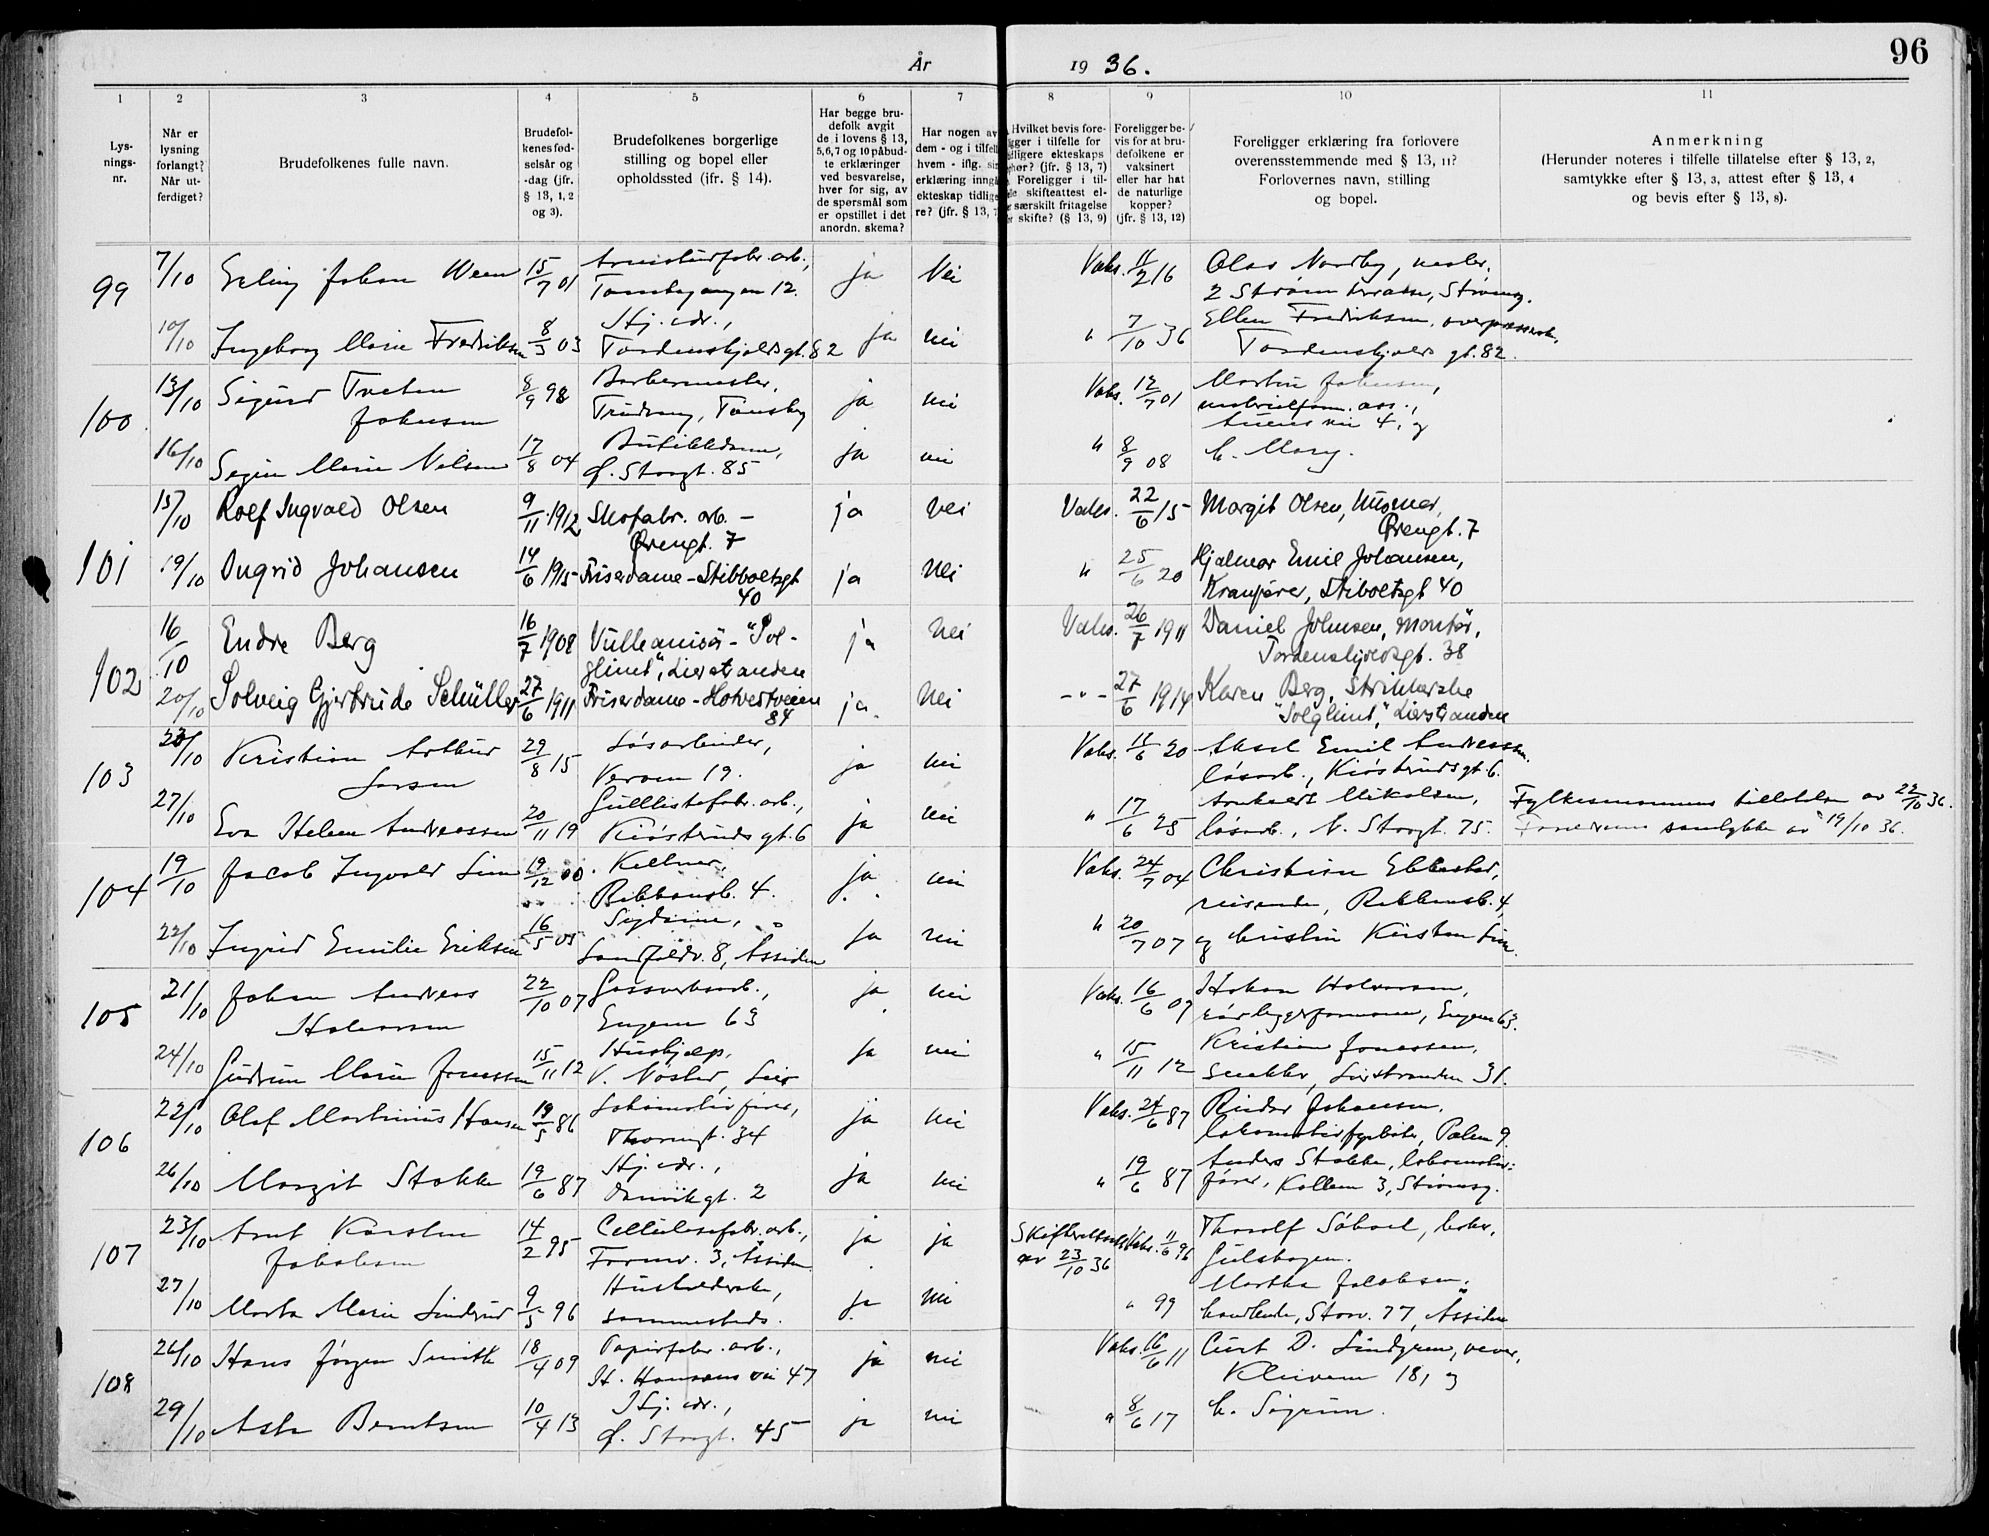 År 1936.
96
1 2 3 4 5 6 7 8 9 10 11
Lys-
nings-
nr.
Når er
lysning
forlangt?
Når ut-
ferdiget?
Brudefolkenes fulle navn.
Brudefol-
kenes fød-
selsår og
-dag (jfr.
§ 13, 1, 2
og 3).
Brudefolkenes borgerlige
stilling og bopel eller
opholdssted (jfr. § 14).
Har begge bru-
defolk avgit
de i lovens § 13,
5, 6, 7 og 10 påbud-
te erklæringer
ved besvarelse,
hver for sig, av
de spørsmål som
er opstillet i det
anordn. skema?
Har nogen av
dem - og i tilfelle
hvem - iflg.
erklæring inngå
ekteskap tidlige
re? (jfr. § 13, 7
Hvilket bevis fore-
ligger i tilfelle for
tidligere ekteskaps
ophør? (jfr. § 13, 7)
Foreligger i til-
skifteattest el-
særskilt fritagelse
skifte? (§ 13, 9)
Foreligger be-
vis for at bru-
defolkene er
vaksinert
eller har hat
de naturlige
kopper?
(jfr. § 13, 12)
Foreligger erklæring fra forlovere
overensstemmende med § 13, 11?
Forlovernes navn, stilling
og bopel.
Anmerkning
(Herunder noteres i tilfelle tillatelse efter § 13, 2,
samtykke efter § 13, 3, attest efter § 13, 4
og bevis efter § 13, 8).
99 7/10 Erling Johan Ween 15/7 01 Armaturfabr. arb., ja Nei Vaks. 11/2 16 Olav Nordby,
Tomtegangen 12. 2 Strøm terrasse, Strømsg.
10/10 Ingeborg Marie Fredriksen 8/3 03 Hj. vær., ja nei " 7/10 36 Ellen Fredriksen,
Tordenskjoldsgt. 82 Tordenskjolds gt. 82.
100 13/10 Sigurd Tveten 8/9 98 Barbermester, ja nei Vaks. 12/7 01 Martin Johnsen,
Johnsen Trudvang, Tønsberg
4, og
16/10 Marie Nilsen 17/8 04 Butikkdame, ja nei " 8/9 08 h. Mary.
Ø. Storgt. 85
101 15/10 Rolf Ingvald Olsen 9/11 1912 Skofabr. arb. - ja nei Vaks. 22/6 15 Margit Olsen, Husmor,
Ørengt. 7 Ørengt. 7
19/10 Ingrid Johansen 14/6 1915 Friserdame - Stibboltsgt ja nei " 25/6 20 Hjalmar Emil Johansen,
40 Kranfører, Stiboltsgt 40
102 16/10 Endre Berg 16/7 1908 Vulkanisør - "Sol- ja nei Vaks. 26/7 1911 Daniel Johnsen, Montør,
glimt", Lierstranden Tordenskjoldsgt. 38
20/10 Solveig Gjertrude Schüller 27/6 1911 Friserdame - Hotvedtveien ja. nei - " - 27/6 1914 Karen Berg, Strikkerske
84 "Solglimt", Lierstranden
103 23/10 Kristian Arthur 29/8 15 Løsarbeider, ja nei Vaks. 11/6 20 Aksel Emil Andreassen
Larsen Veraen 19. løsarb., Kiøsterudsgt. 6.
27/10 Eva Helene Andreassen 20/11 19 Gulllistefabr. arb., ja nei " 17/6 25 Mikalsen, Fylkesmannens tillatelse av 22/10 36.
Kiøsteruds gt. 6 løsarb., N. Storgt. 75. Foreldrenes samtykke av 19/10 36.
104 19/10 Jacob Ingvald Lien 19/12 00. Kelner, ja nei Vaks. 24/7 04 Christian Ebbestad,
Bikkensb. 4. reisende, Bikkensb. 4,
22/10 Ingrid Emilie Eriksen 16/5 05 Sydame, ja nei " 20/7 07 og Kirsten Lien.
Landfaldv. 8, Åssiden
105 21/10 Johan Andreas 22/10 07 Gassverksarb., ja nei Vaks. 16/6 09 Håkon Halvorsen,
Halvorsen Engene 63 rørleggerformann, Engene 63.
24/10 Gudrun Marie Jonassen 15/11 12 Hushjelp, ja nei " 15/11 12 Kristian Jonassen,
V. Nøsted, Lier snekker, Lierstranden 31.
106 22/10 Olaf Martinius Hansen 19/5 86 Lokomotivfører, ja nei Vaks. 24/6 87 Reidar Johansen,
Thornegt. 34 lokomotivfyrbøter, Pælen 9.
26/10 Margit Stokke 19/6 87 Hj. vær., ja nei " 19/6 87 Anders Stokke, lokomotiv-
Danvikgt. 2 fører, Kollen 3, Strømsg.
107 23/10 Arnt Karsten 14/2 95 Cellulosefabr. arb., ja ja Skifteattest Vaks. 11/6 96 Thoralf Solvel,
Jakobsen Formv. 3, Åssiden av 23/10 36 Gulskogen.
27/10 Marta Marie Lindrud 9/5 96 Husholderske, ja. nei " 99 Martha Jacobsen,
sammesteds. Storv. 77, Åssiden
108 26/10 Hans Jørgen Smith 18/4 09 Papirfabr. arb., ja nei Vaks. 16/6 11 Curt D. Lindgren, vever,
H. Hansens vei 47 Kleivene 18, og
29/10 Asta Berntsen 10/4 13 Hj. vær., ja nei " 8/6 17 h. Sigrun.
Ø. Storgt. 45